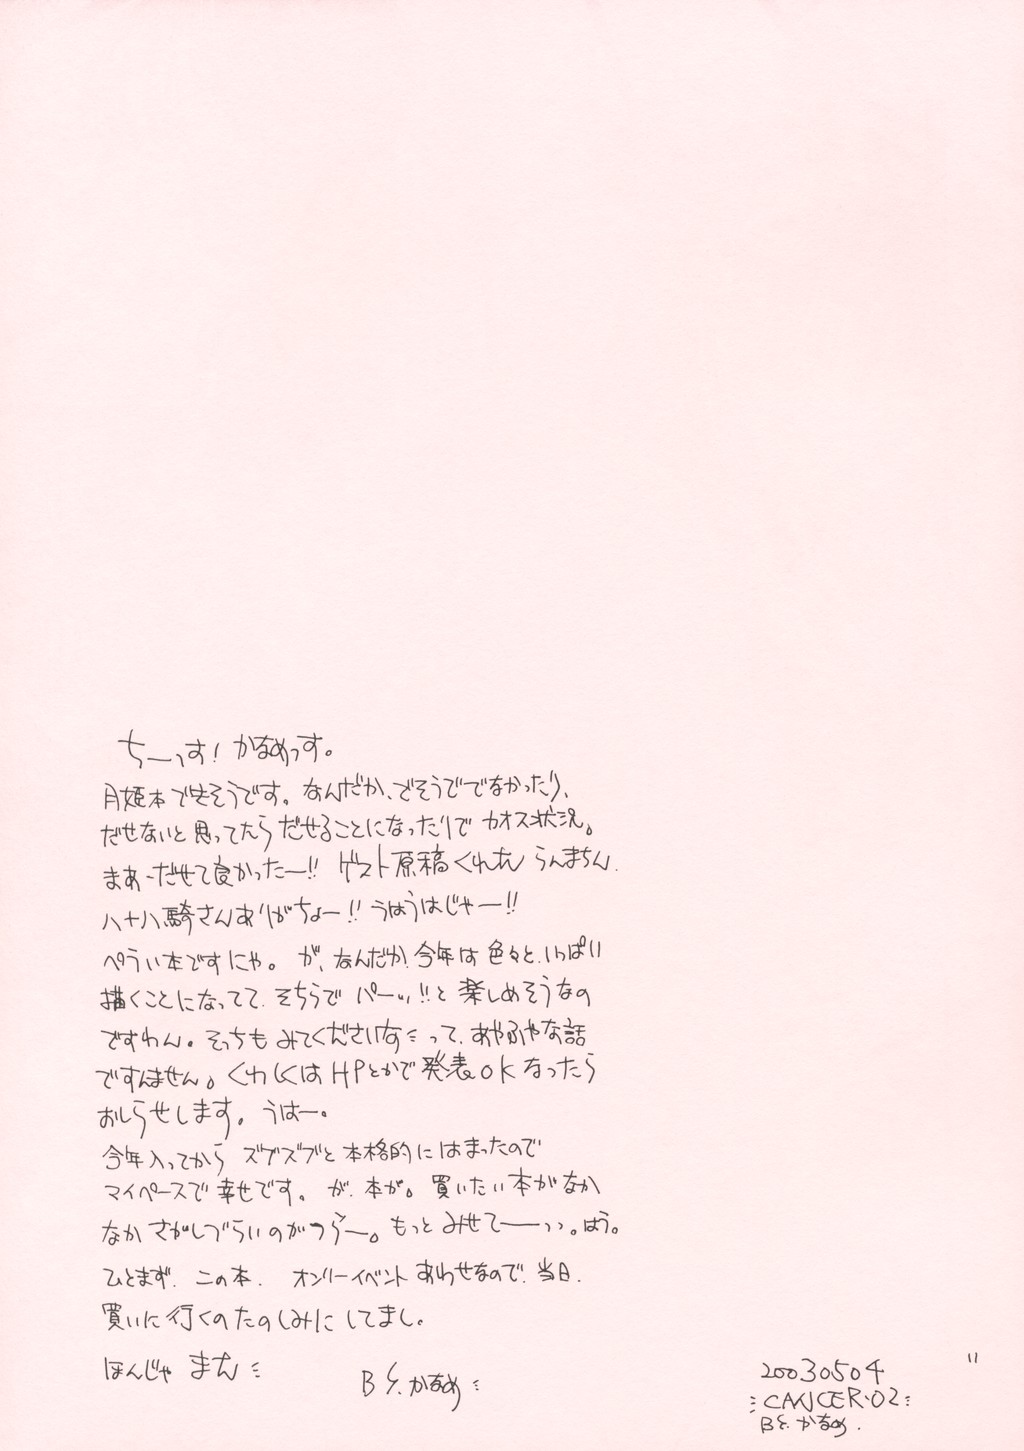 ちーっす！かなめっす。
月姫本で出そうです。なんだか、でそうででなかったり、
だせないと思ってたらだせることになったりでカオス状況。
まあーだせて良かったー!! ゲスト原稿くれた らんまちん.
八十八騎さんありがちょー!! うはうはじゃー!!
ぺらい本ですにゃ。が、なんだか今年は色々と、いっぱい
描くことになってて、そちらでパーッ!!と楽しめそうなの
ですわん。そっちもみてくださいなって、あやふやな話
ですんません。くわしくはHPとかで発表OKなったら
おしらせします。うはー。
今年入ってから ズブズブと本格的にはまったので
マイペースで幸せです。が、本が。買いたい本がなか
なかさがしづらいのがつらー。もっとみせてーっっ。はう。
ひとまず、この本、オンリーイベントあわせなので、当日、
買いに行くのたのしみにしてまし。
ほんじゃ また
B'S.かなめ
11
20030504
CANCER・02
B'S.かなめ.